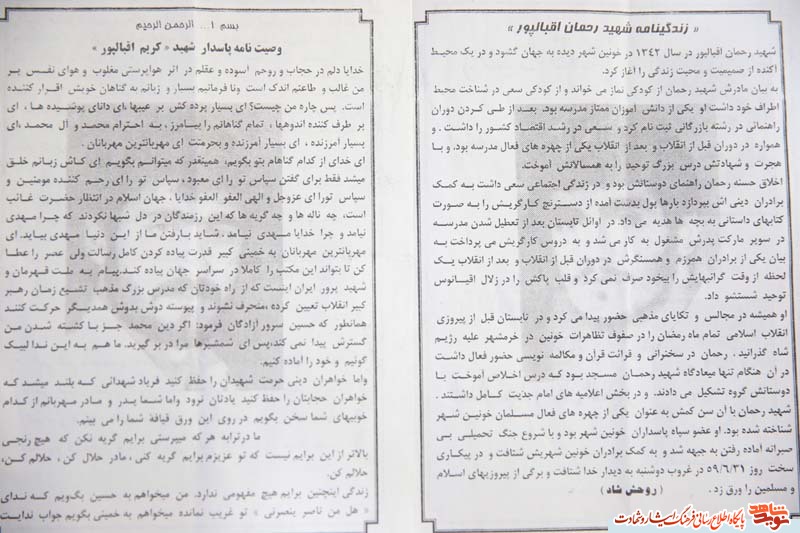 « زندگینامه شهید رحمان اقبالپور »
شهید رحمان اقبالپور در سال ۱۳۴۲ در خونین شهر دیده به جهان گشود و در یک محیط
آکنده از صمیمیت و محبت زندگی را آغاز کرد.
به بیان مادرش شهید رحمان از کودکی نماز می خواند و از کودکی سعی در شناخت محیط
اطراف خود داشت او یکی از دانش آموزان ممتاز مدرسه بود. بعد از طی کردن دوران
راهنمائی در رشته بازرگانی ثبت نام کرد و سعی در رشد اقتصاد کشور را داشت . و
همواره در دوران قبل از انقلاب و بعد از انقلاب یکی از چهره های فعال مدرسه بود. و با
هجرت و شهادتش درس بزرگ توحید را به همسالانش آموخت.
اخلاق حسنه رحمان راهنمای دوستانش بود و در زندگی اجتماعی سعی داشت به کمک
برادران دینی اش بپردازد بارها پول بدست آمده از دسترنج کارگریش را به صورت
کتابهای داستانی به بچه ها هدیه می داد. در اوائل تابستان بعد از تعطیل شدن مدرسه
در سوپر مارکت پدرش مشغول به کار می شد و به دروس کارگریش می پرداخت به
بیان یکی از برادران همرزم و همسنگرش در دوران قبل از انقلاب و بعد از انقلاب یک
لحظه از وقت گرانبهایش را بیخود صرف نمی کرد و قلب پاکش را در زلال اقیانوس
توحید شستشو داد.
او همیشه در مجالس و تکایای مذهبی حضور پیدا می کرد و در تابستان قبل از پیروزی
انقلاب اسلامی تمام ماه رمضان را در صفوف تظاهرات خونین در خرمشهر علیه رژیم
شاه گذرانید . رحمان در سخنرانی و قرائت قرآن و مکالمه نویسی حضور فعال داشت
در آن هنگام تنها میعادگاه شهید رحمان مسجد بود که درس اخلاص آموخت با
دوستانش گروه تشکیل می دادند . و در بخش اعلامیه های امام جدیت کامل داشتند .
شهید رحمان با آن سن کمش به عنوان یکی از چهره های فعال مسلمان خونین شهر
شناخته شده بود. او عضو سپاه پاسداران خونین شهر بود و با شروع جنگ تحمیلی بی
صبرانه آماده رفتن به جبهه شد و به کمک برادران خونین شهریش شتافت و در پیکاری
سخت روز ۵۹/۶/۳۱ در غروب دوشنبه به دیدار خدا شتافت و برگی از پیروزیهای اسلام
و مسلمین را ورق زد . ( روحش شاد )
بسم ا... الرحمن الرحیم
وصیت نامه پاسدار شهید « کریم اقبالپور »
خدایا دلم در حجاب و روحم آسوده و عقلم در اثر هواپرستی مغلوب و هوای نفس بر
من غالب و طاعتم اندک است ونا فرمانیم بسیار و زبانم به گناهان خویش اقرار کننده
است. پس چاره من چیست؟ ای بسیار پرده کش بر عیبها ،ای دانای پوشیده ها ، ای
بر طرف کننده اندوهها، تمام گناهانم را بیامرز، به احترام محمد و آل محمد ،ای
بسیار آمرزنده ، ای بسیار آمرزنده و بحرمتت ای مهربانترین مهربانان .
ای خدای از کدام گناهام بتو بگویم، همینقدر که میتوانم بگویم ای کاش زبانم خلق
میشد فقط برای گفتن سپاس تو را ای معبود، سپاس تو را ای رحم کننده مومنین و
سپاس تورا ای عزوجل و الهی العفو العفو خدایا ، جهان اسلام در انتظار حضرت غائب
است، چه ناله ها و چه گریه ها که این رزمندگان در دل شبها نکردند که چرا مهدی
نیامد و چرا خدایا مهدی نیامد ، شاید بارفتن ما از این دنیا مهدی بیاید. ای
مهربانترین مهربانان به خمینی کبیر قدرت پیاده کردن کامل رسالت ولی عصر را عطا
کن تا بتواند این مکتب را کاملا در سراسر جهان پیاده کند.پیام به ملت قهرمان و
شهید پرور ایران اینست که از راه خودتان که مدرس بزرگ مذهب تشیع زمان رهبر
کبیر انقلاب تعیین کرده ،منحرف نشوند و پیوسته دوش بدوش همدیگر حرکت کنند
همانطور که حسین سرور آزادگان فرمود: اگر دین محمد جز با کشته شدن من
گسترش پیدا نمی کند،پس ای شمشیرها مرا در بر گیرید. ما هم به این ندا لبیک
گوئیم و خود را آماده کنیم.
واما خواهران دینی حرمت شهیدان را حفظ کنید فریاد شهدائی که بلند میشد که
خواهران حجابتان را حفظ کنید یادتان نرود واما شما پدر و مادر مهربانم از کدام
خوبیهای شما سخن بگویم در روی این ورق قیافهٔ شما را می بینم.
مادرترابه هر که میپرستی برایم گریه نکن که هیچ رنجی
بالاتر از این برایم نیست که تو عزیزم برایم گریه کنی ، مادر حلال کن، حلالم کن،
حلالم کن.
زندگی اینچنین برایم هیچ مفهومی ندارد. من میخواهم به حسین بگویم که ندای
« هل من ناصر ینصرنی » تو غریب نمانده میخواهم به خمینی بگویم جواب ندایت
نوید شاهد
پایگاه اطلاع رسانی فرهنگ ایثار و شهادت